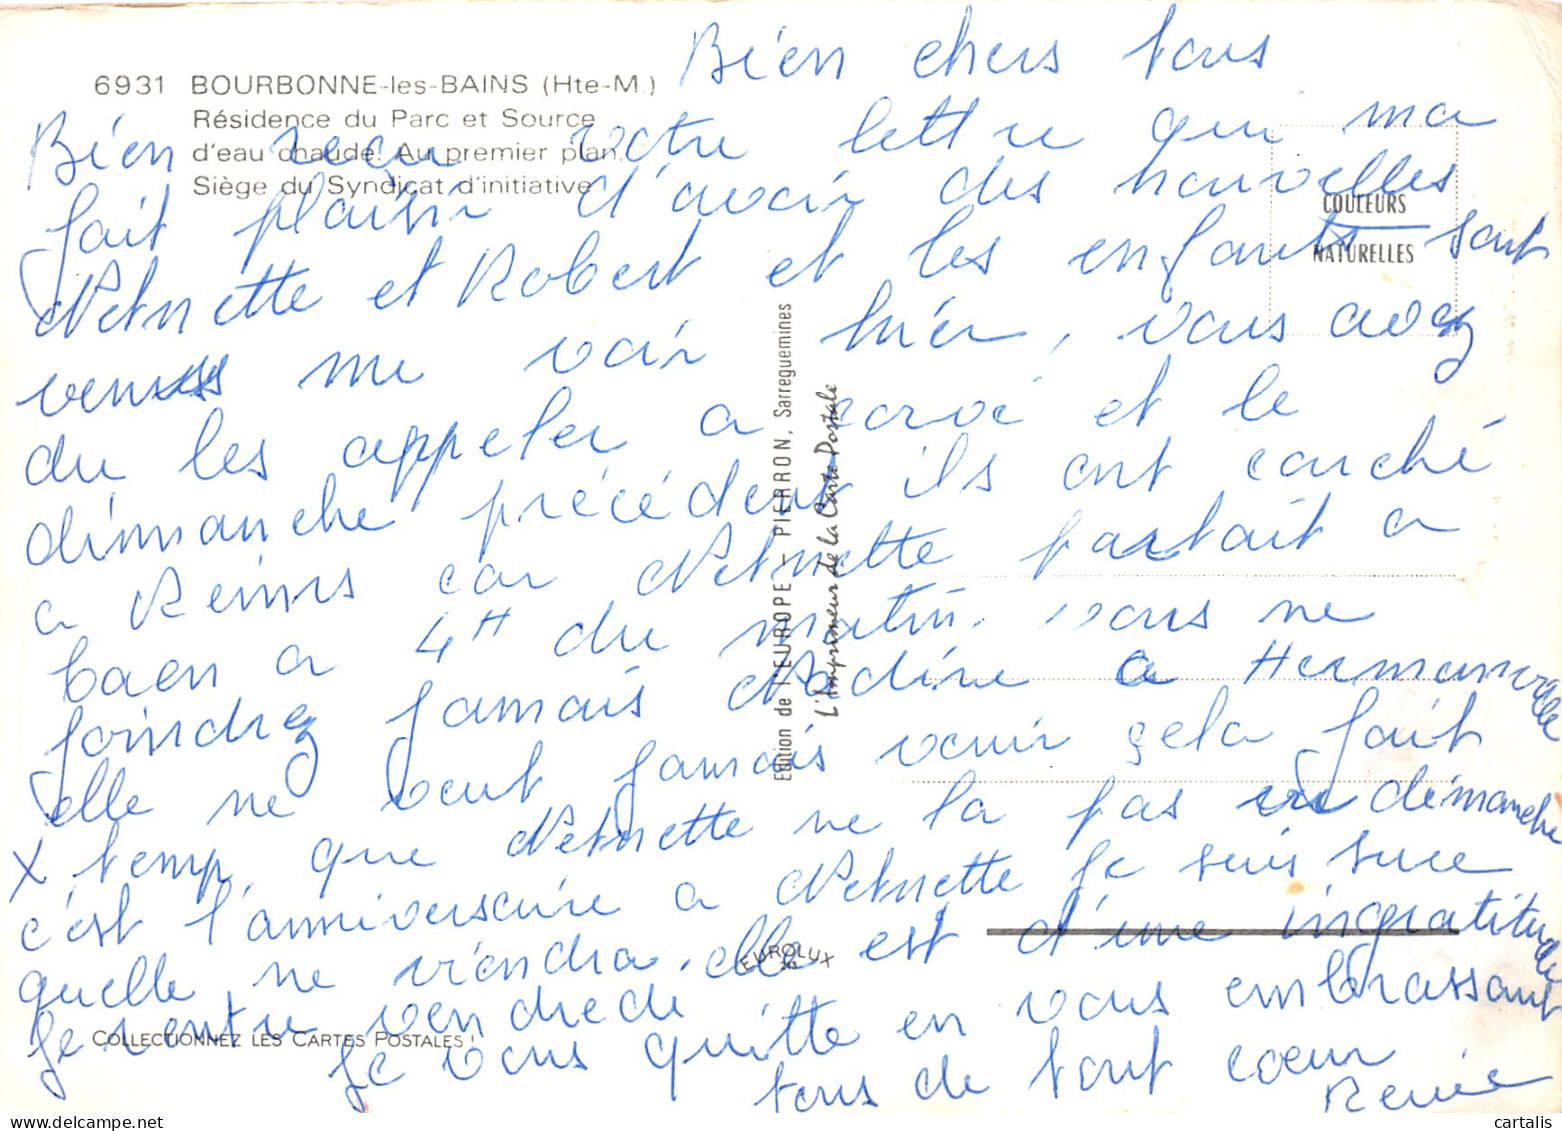 6931 BOURBONNE-les-BAINS (Hte-M.)
Résidence du Parc et Source
d'eau chaude. Au premier plan.
Siège du Syndicat d'initiative
COULEURS
NATURELLES
Edition de l'EUROPE - PIERRON, Sarreguemines
L'Imprimeur de la Carte Postale
EUROLUX
COLLECTIONNEZ LES CARTES POSTALES !
Bien chers tous
Bien recu votre lettre qui ma
fait plaisir d'avoir des nouvelles
et Robert et les enfants sont
venus me voir hier, vous avez
du les appeler a et le
dimanche précédent ils ont couché
a Reims car partait a
Caen a 4H du matin. vous ne
joindrez jamais Nadine a Hermanville
elle ne veut jamais venir çela fait
X temp que ne la pas vu dimanche
c'est l'anniversaire a je suis sure
quelle ne viendra. elle est d'une ingratitude
je rentre vendredi
je vous quitte en vous embrassant
tous de tout cœur
Renée
cartalis